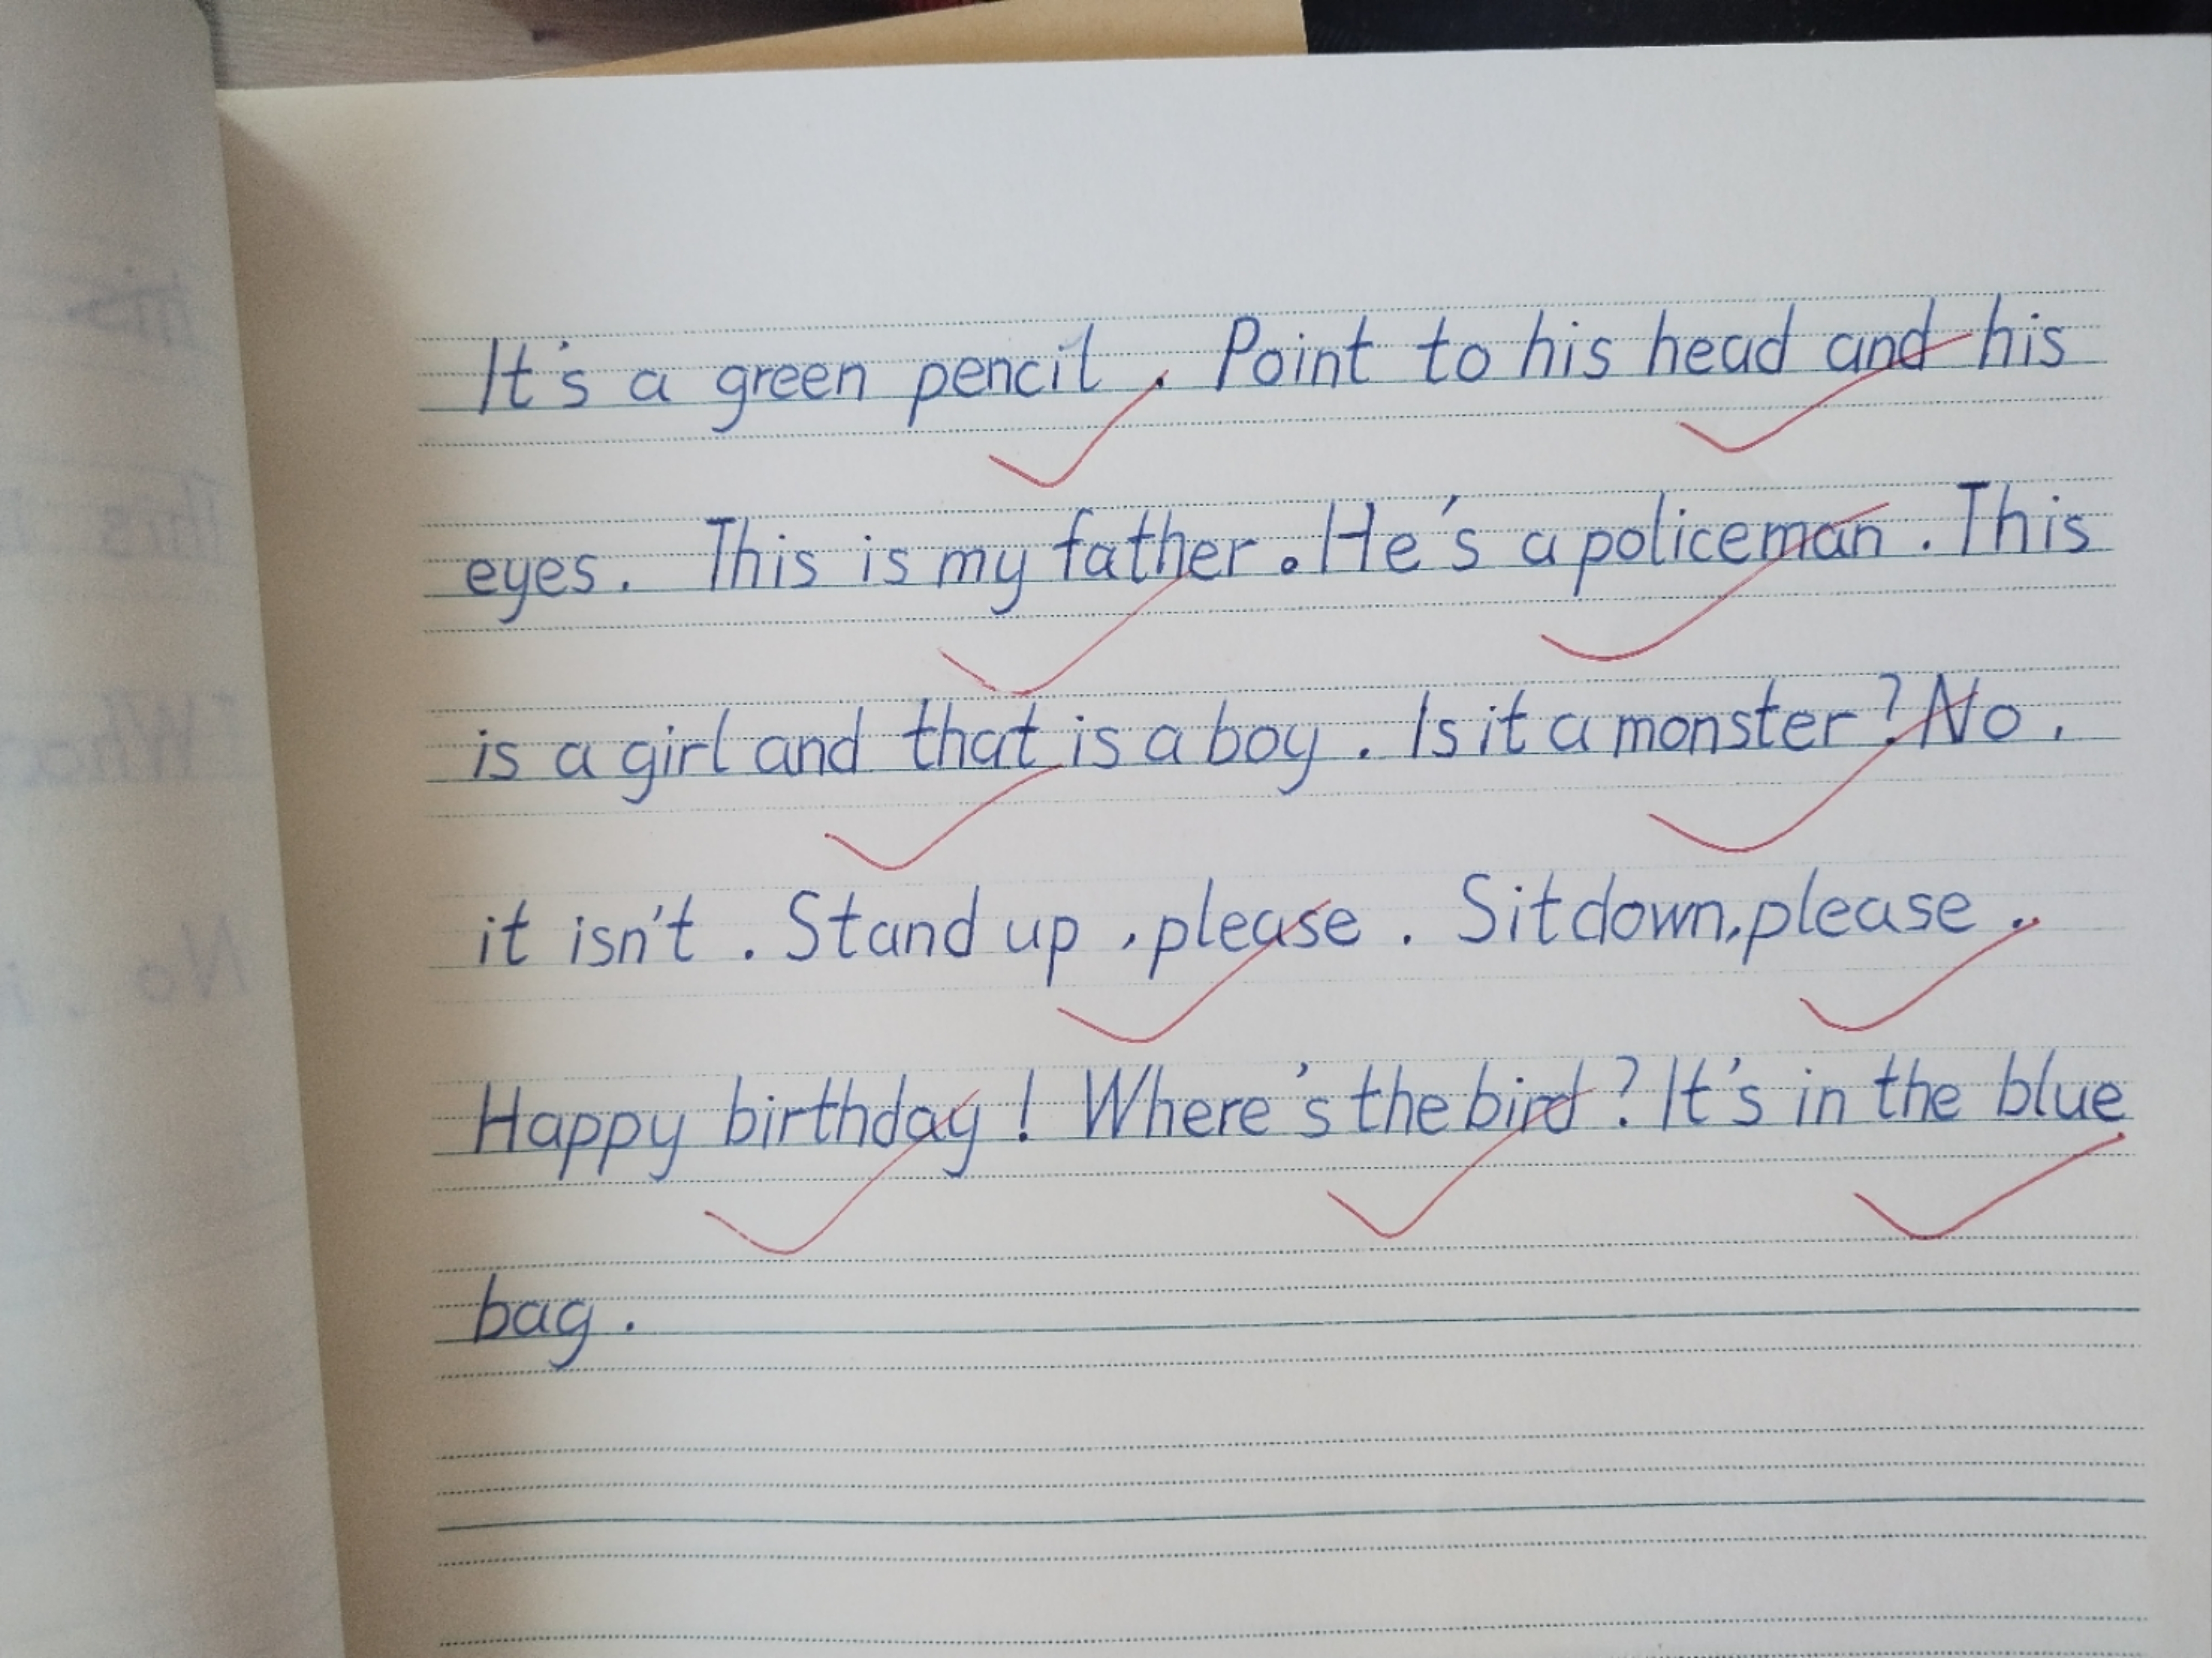 It's a green pencil. Point to his head and his
eyes. This is my father. He's a policeman. This
is a girl and that is a boy. Is it a monster? No,
it isn't. Stand up, please. Sit down, please.
Happy birthday! Where's the bird? It's in the blue
bag.